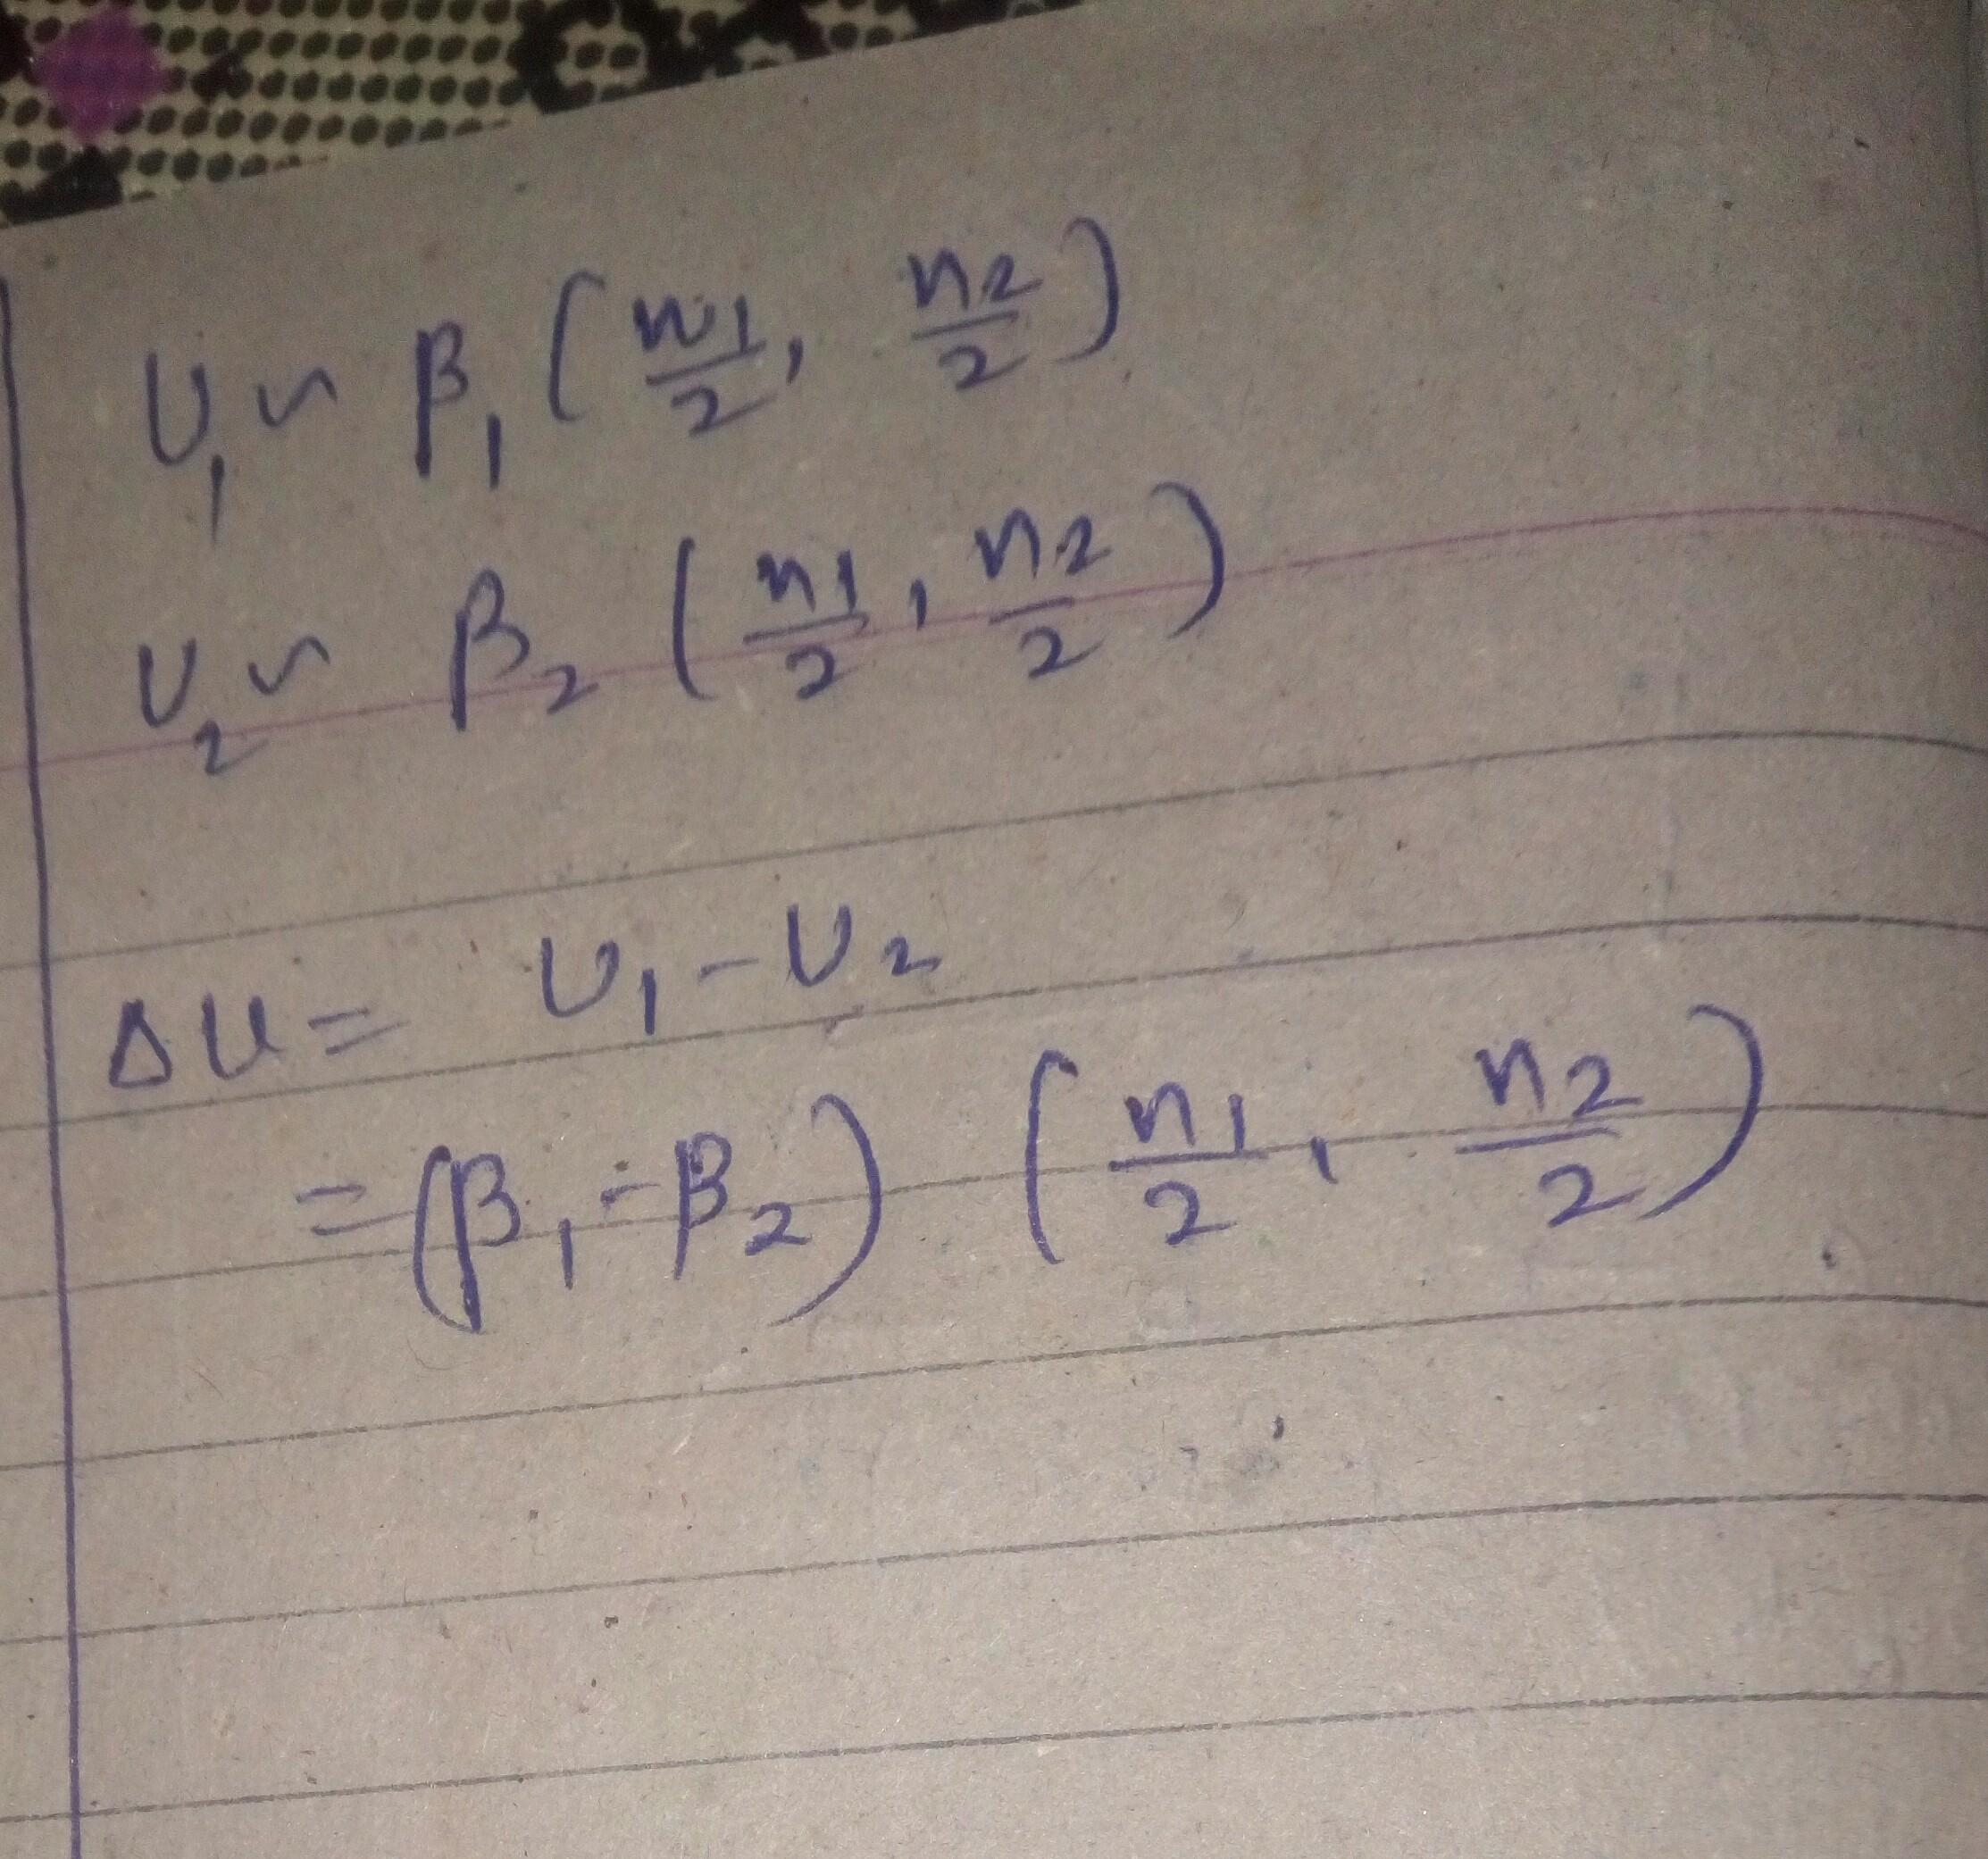 U₁ ~ β₁ (n₁/2, n₂/2)
U₂ ~ β₂ (n₁/2, n₂/2)
Δu = U₁ - U₂
= (β₁ - β₂) (n₁/2, n₂/2)